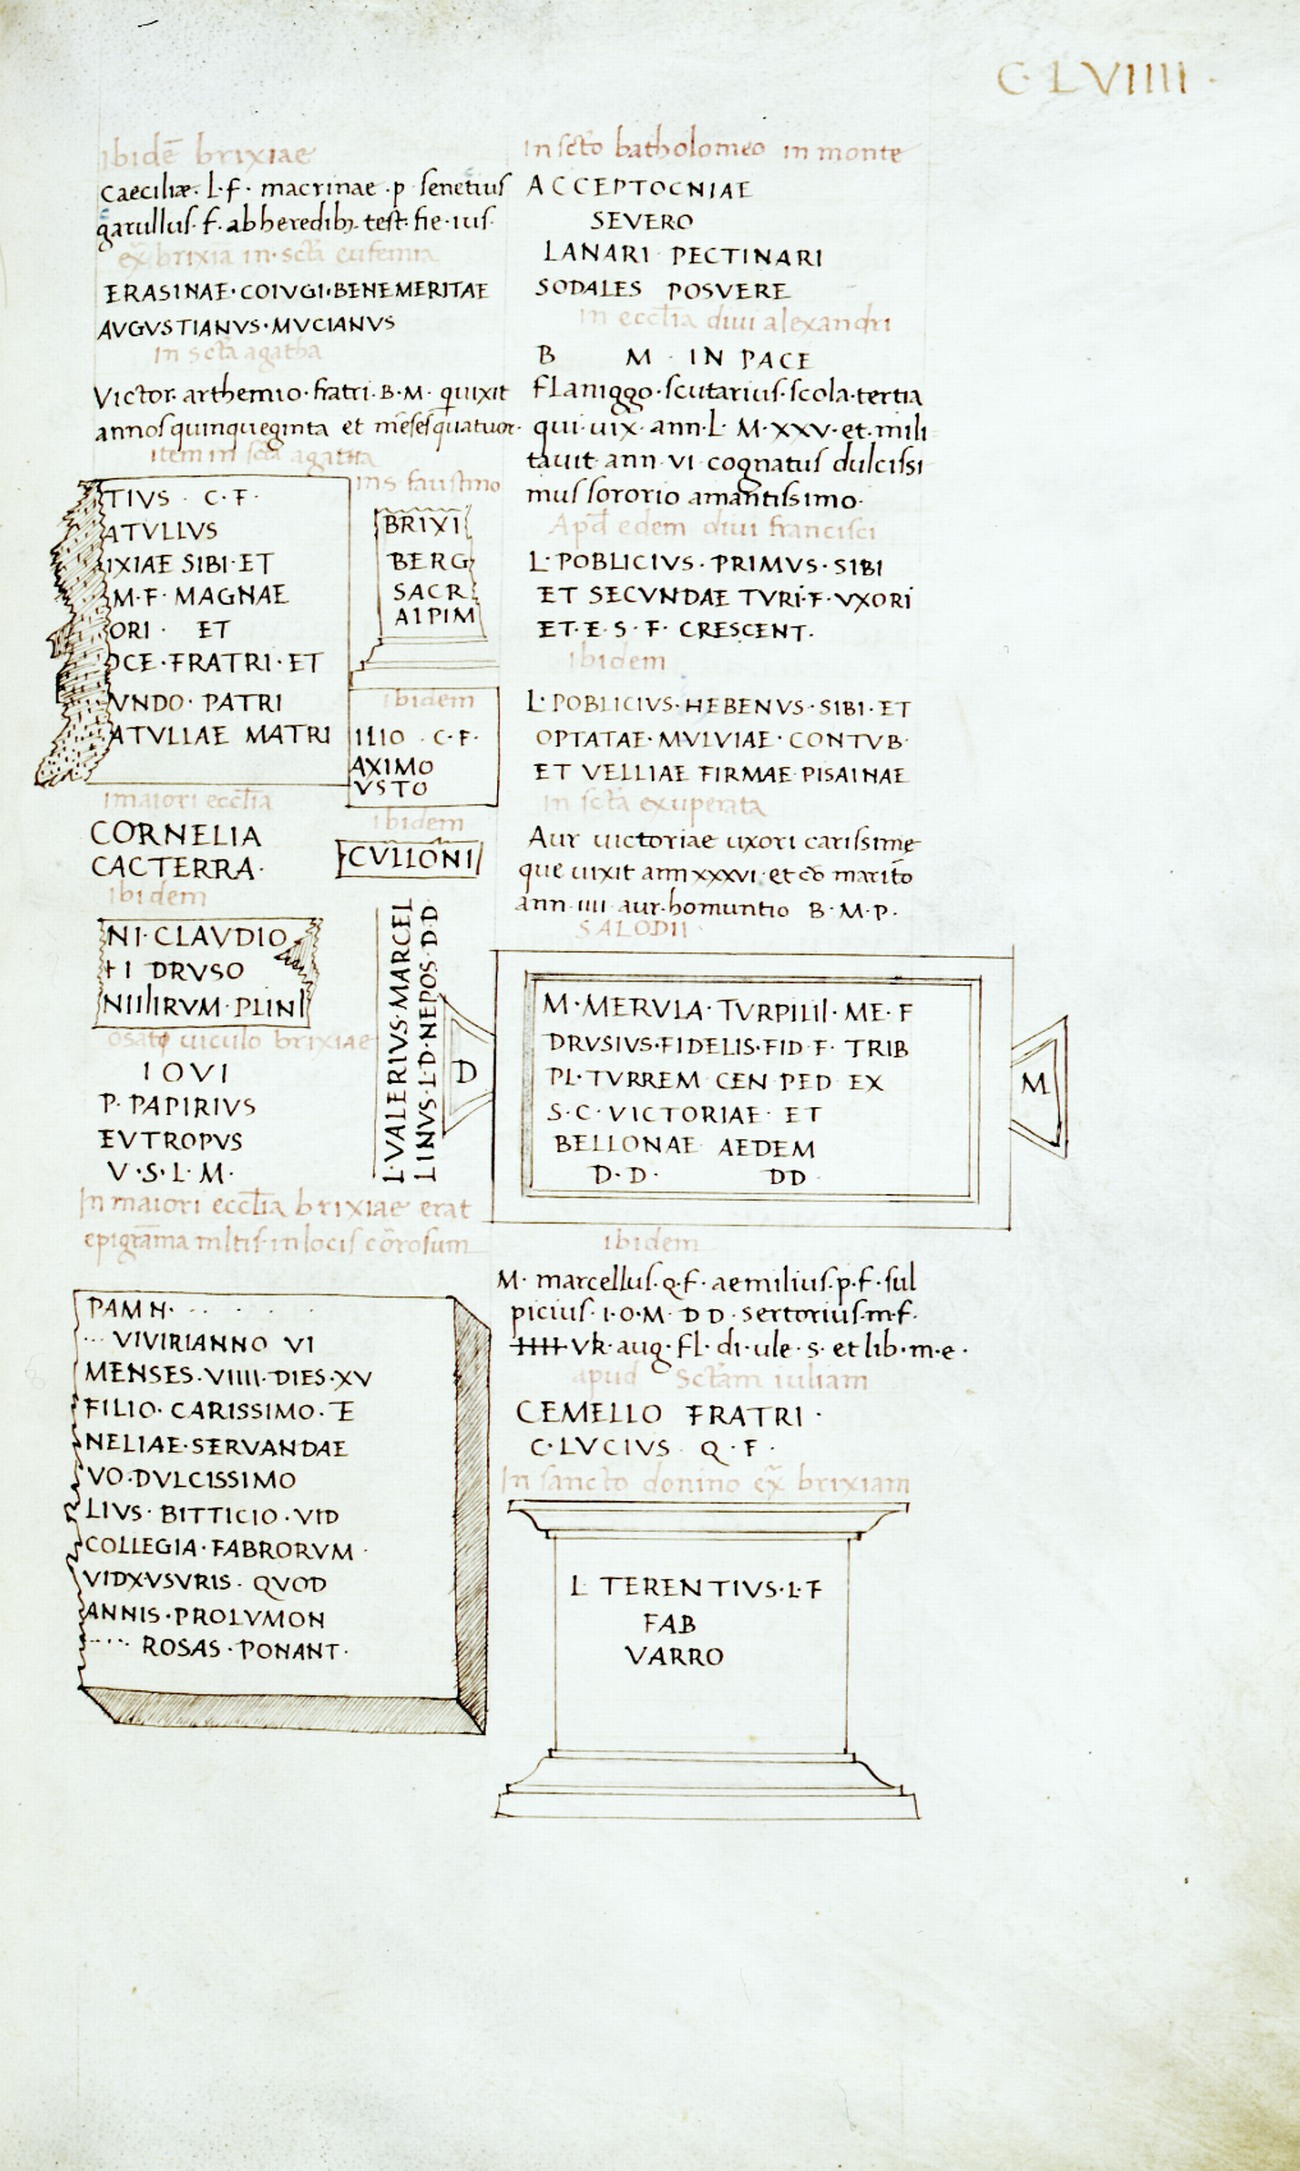 C·LVIIII·
ibidē brixiae
caeciliæ·L·f·macrinae·p·senetius
garullus·f·ab heredib; test·fie·ius·
ex̄ brixiā in·sctā eufemia
ERASINAE·COIVGI·BENEMERITAE
AVGVSTIANVS·MVCIANVS
In sctā agatha
Victor·arthemio·fratri·B·M·quixit
annos quinqueginta et mēses quatuor·
item in sctā agatha
TIVS · C·F·
ATVLLVS
IXIAE SIBI·ET
M·F·MAGNAE
ORI · ET
OCE·FRATRI·ET
VNDO·PATRI
ATVLLAE MATRI
in s faustino
BRIXI
BERG
SACR
AIPIM
ibidem
ILIO · C·F·
AXIMO
VSTO
imaiori ecclīa
CORNELIA
CACTERRA·
ibidem
CVLLONI
ibidem
NI·CLAVDIO
TI DRVSO
NIIIIRVM·PLINI
L·VALERIVS·MARCEL
LINVS·L·D·NEPOS·D·D
uiculo brixiae
IOVI
P·PAPIRIVS
EVTROPVS
V·S·L·M·
In maiori ecclīa brixiae erat
epigrāma mltis·in locis cōrosum
PAMN· ·· · · ·
··· VIVIRIANNO VI
MENSES·VIIII·DIES·XV
FILIO·CARISSIMO·TE
NELIAE·SERVANDAE
VO·DVLCISSIMO
LIVS·BITTICIO·VID
COLLEGIA·FABRORVM·
VIDXVSVRIS·QVOD
ANNIS·PROLVMON
····· ROSAS·PONANT·
In scto batholomeo in monte
ACCEPTOCNIAE
SEVERO
LANARI PECTINARI
SODALES POSVERE
in ecclīa diui alexandri
B M · IN PACE
flaniggo·scutarius·scola·tertia
qui·uix·ann·L·M·XXV·et·mili
tauit ann·VI·cognatus dulcissi
mus sororio amantissimo·
Apd̄ edem diui francisci
L·POBLICIVS·PRIMVS·SIBI
ET SECVNDAE TVRI·F·VXORI
ET·E·S·F·CRESCENT·
ibidem
L·POBLICIVS·HEBENVS·SIBI·ET
OPTATAE·MVLVIAE·CONTVB·
ET VELLIAE FIRMAE PISAINAE
in sctā exuperata
Aur uictoriae uxori carissime
que uixit ann XXXVI·et cō marito
ann·IIII·aur·homuntio B·M·P·
SALODII
D
M·MERVLA·TVRPILII·ME·F
DRVSIVS·FIDELIS·FID·F·TRIB
PL·TVRREM CEN PED EX
S·C·VICTORIAE·ET
BELLONAE AEDEM
D·D· DD
M
ibidem
M·marcellus·q·f·aemilius·p·f·sul
picius·I·O·M·D D·sertorius·m·f·
IIIII VK·aug·fl·di·ule·s·et lib·m·e·
apud Sctam iuliam
CEMELLO FRATRI·
C·LVCIVS Q·F·
In sancto donino ex̄ brixiam
L TERENTIVS·L·F
FAB
VARRO